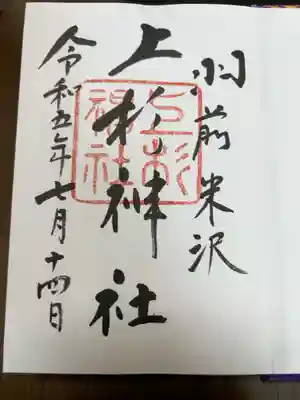 羽前米沢
上杉神社
上杉神社
令和五年七月十四日